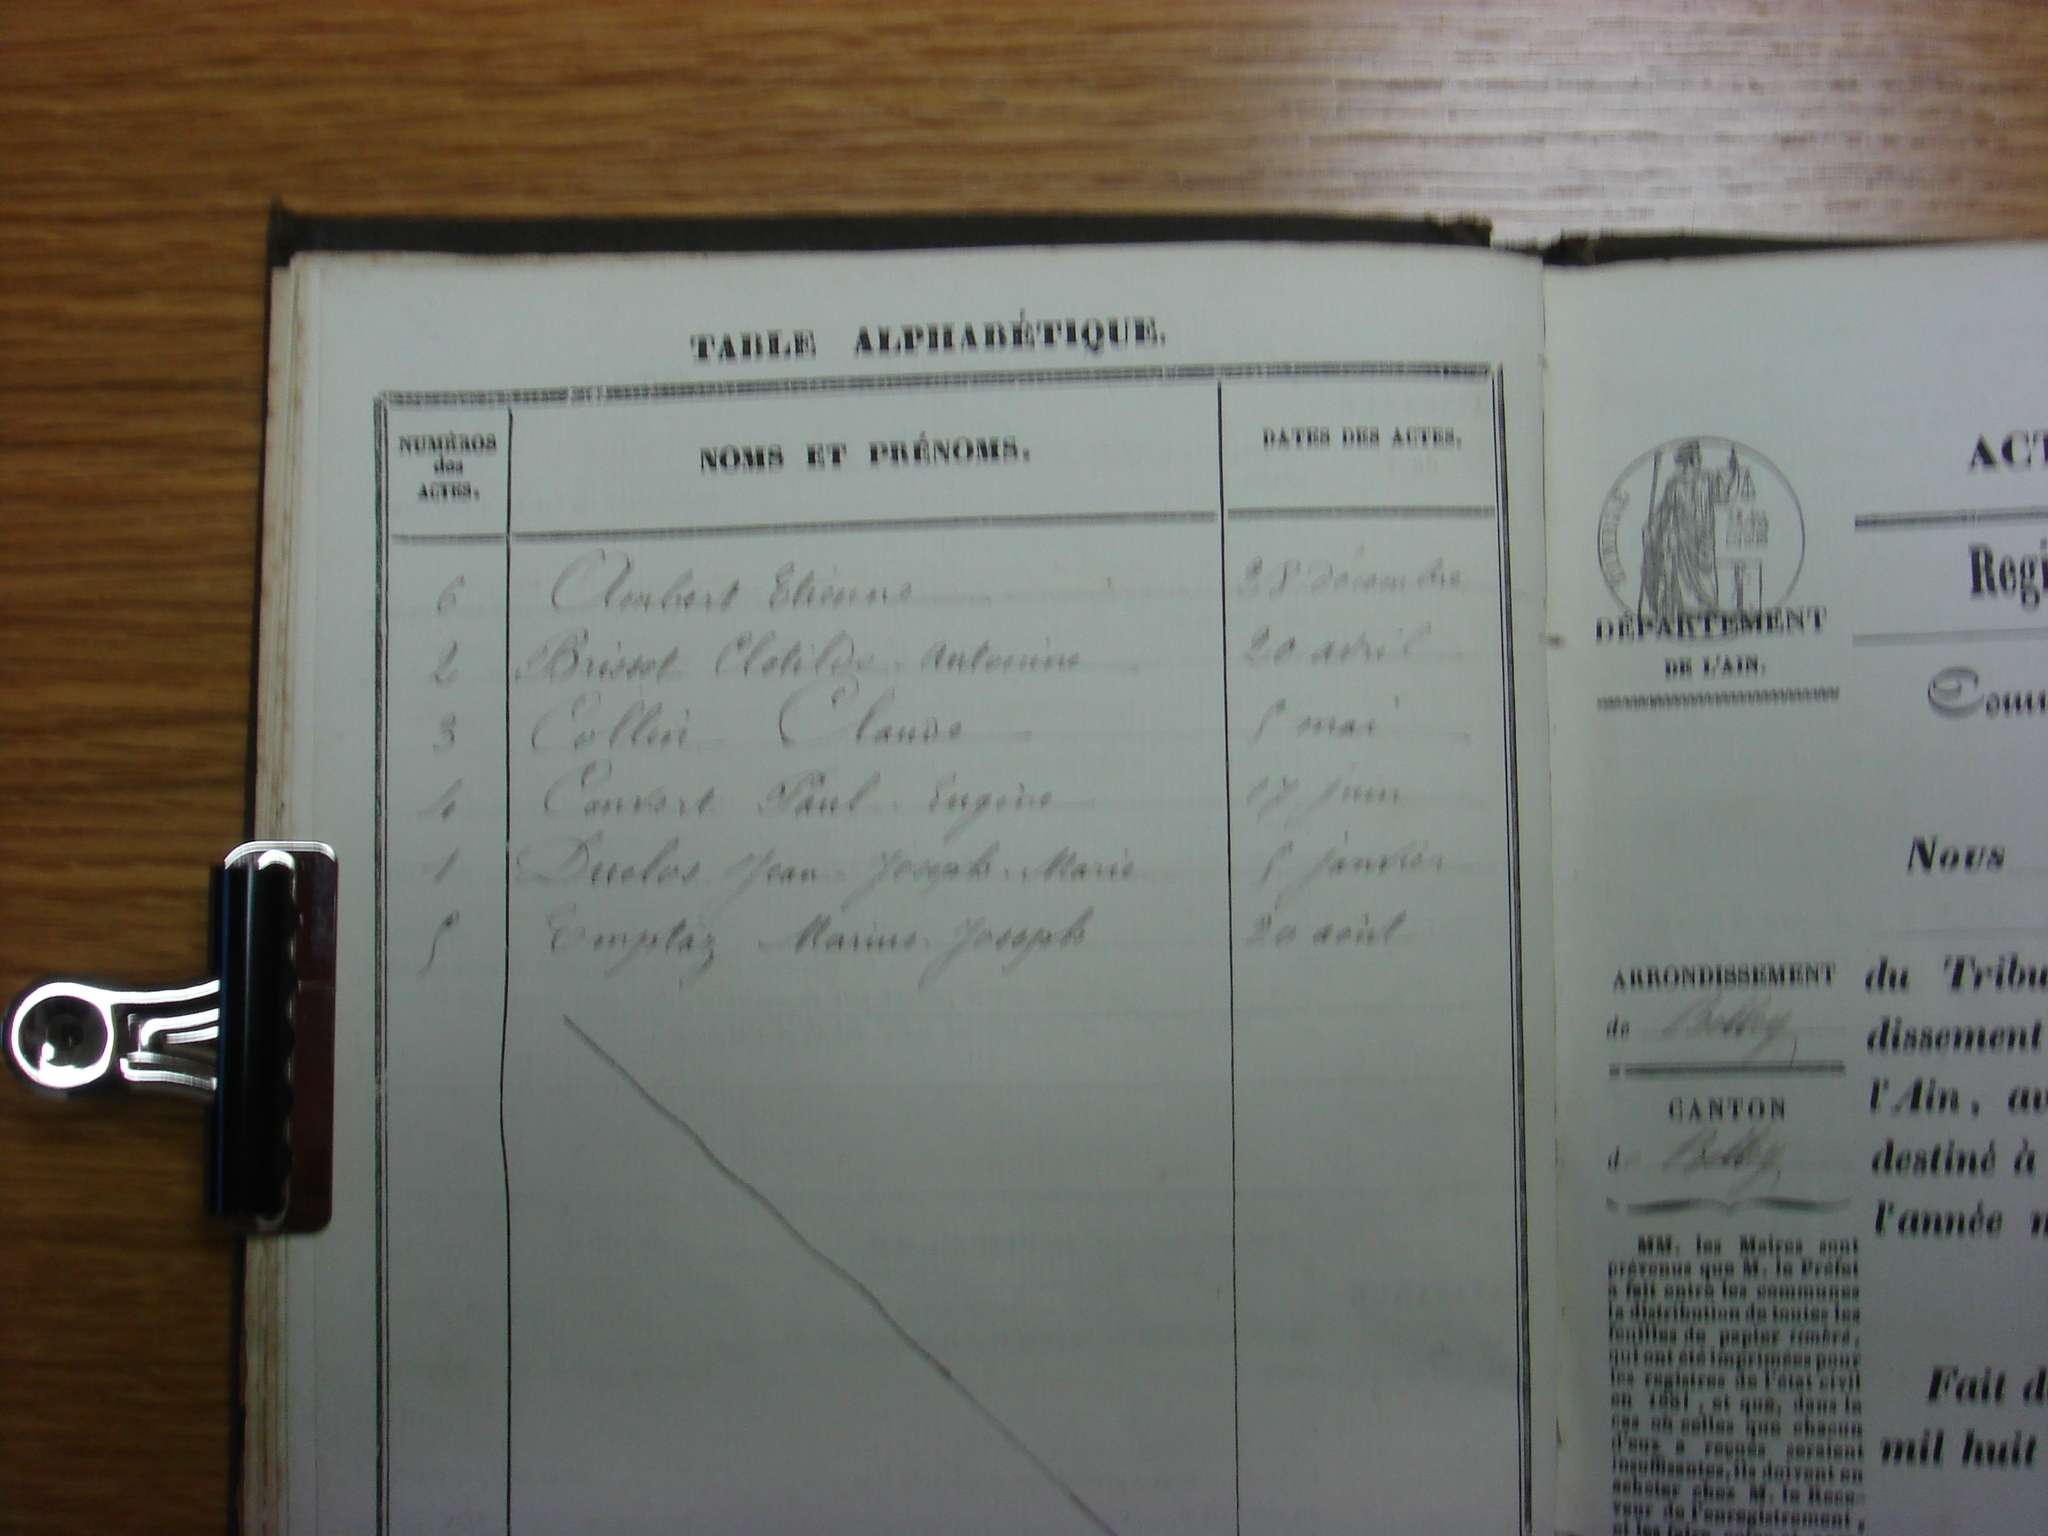 TABLE ALPHABÉTIQUE.
NUMÉROS des ACTES. NOMS ET PRÉNOMS. DATES DES ACTES.
6 Aimbert Etienne 28 décembre
2 Brissot Clotilde Antonine 20 avril
3 Collin Claude 5 mai
4 Convert Paul Eugène 17 juin
1 Duclos Jean Joseph Marie 5 janvier
5 Emptaz Marius Joseph 20 août
ACT
Regi
DÉPARTEMENT
DE L'AIN.
Com
Nous
ARRONDISSEMENT
de Belley
du Tribu
dissement
CANTON
de Belley
l'Ain, av
destiné à
l'année m
MM. les Maires sont
prévenus que M. le Préfet
a fait entre les communes
la distribution de toutes les
feuilles de papier timbré,
qui ont été imprimées pour
les registres de l'état civil
en 1861, et que, dans le
cas où celles que chacun
d'eux a reçues seraient
insuffisantes, ils doivent en
acheter chez M. le Rece-
veur de l'enregistrement,
Fait d
mil huit